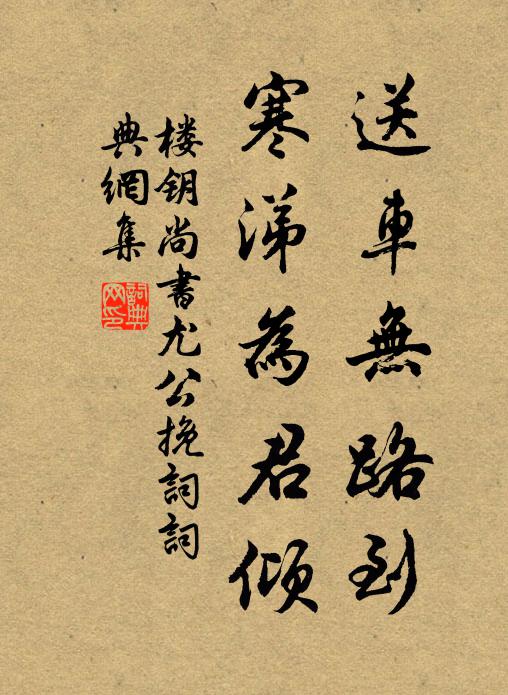 送車無路到
寒涕為君傾
楼钥尚書尤公挽詞詞
典網集
詞典網印